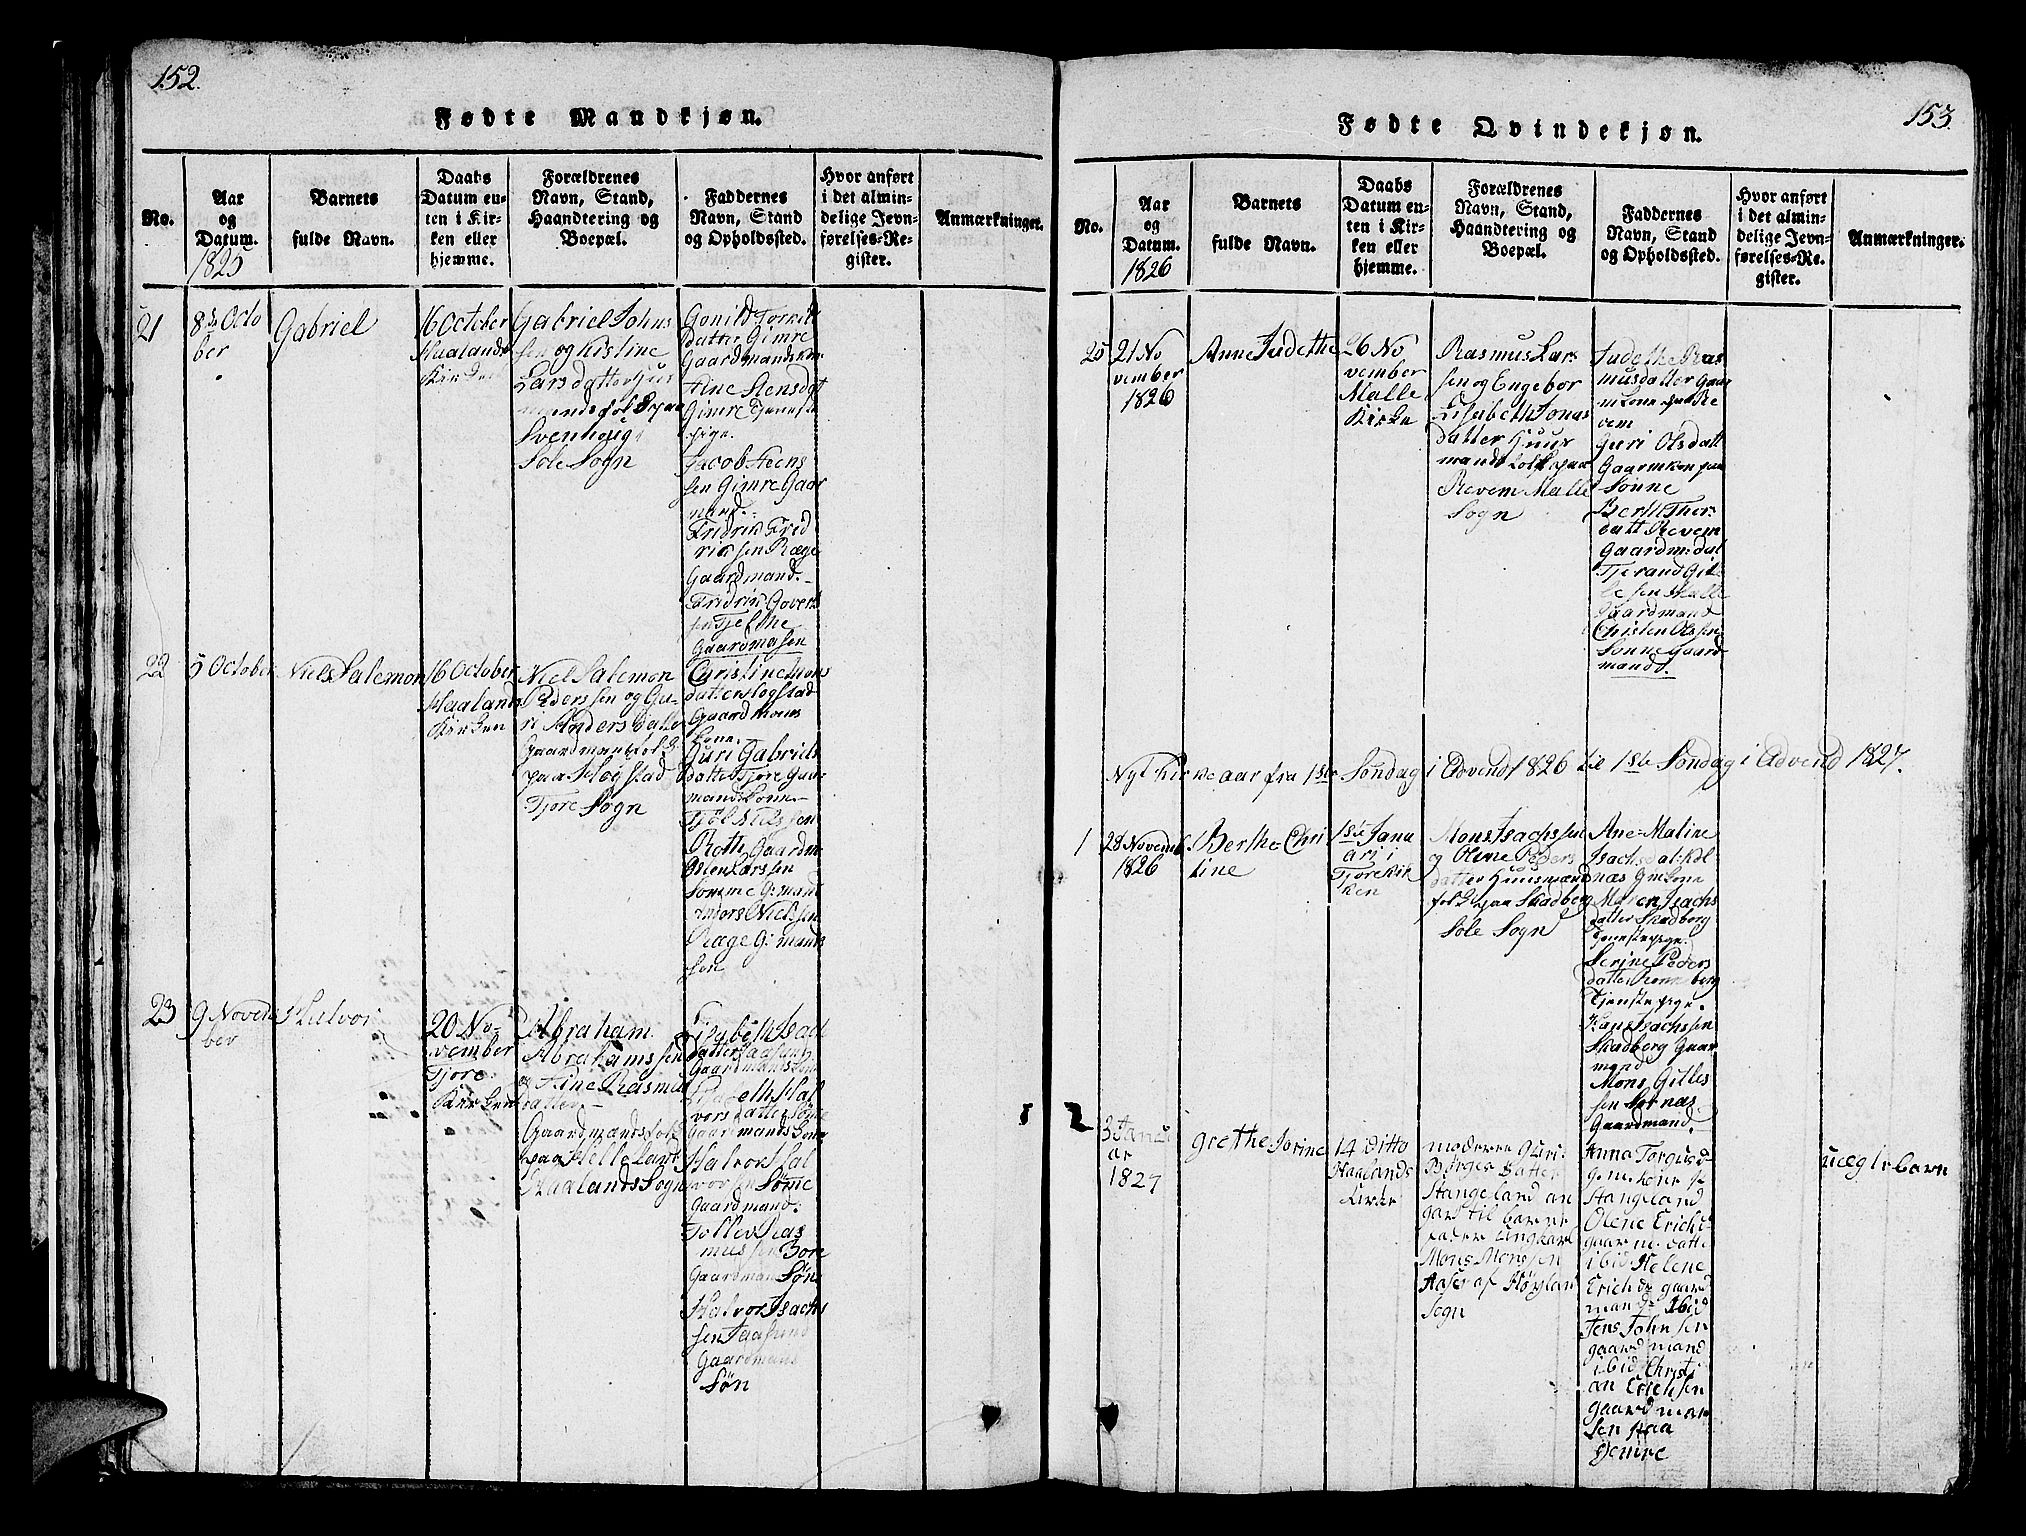 152.
Fødte Mandkjøn.
No.
Aar
og
Datum.
1825
Barnets
fulde Navn.
Daabs
Datum en-
ten i Kir-
ken eller
hjemme.
Forældrenes
Navn, Stand,
Haandtering og
Boepæl.
Faddernes
Navn, Stand
og Opholdssted.
Hvor anført
i det almin-
delige Jevn-
førelses-Re-
gister.
Anmærkninger.
21
8de Octo
ber
Gabriel
16 October
Haalands
Kirken
Gabriel Johns
sen og Kistine
Lars datter Huus
mandsfolk paa
Svenhoug
Sole Sogn
Gonild Torkild
datter Gimre
Gaardmandskone
Tine Stensdat
Gimre Tjeneste
pige.
Jacob Steens
sen Gimre Gaar
mand.
Fridrik Frid
riksen Ræge
Gaardmand.
Fridrik Goverts
sen Tjelthe
Gaardmasen
22
5 October
Niels Salemon
16 October
Haaland
Kirken
Niel Salemon
Pederssen og Gu-
ri Anders datter
Gaardmandsfolk
paa Slogstad
Tjore Sogn
Christine Mons
datter Slogstad
Gaardmans
kone.
Guri Gabriels
datter Tjore Gaar
mandskone
Tjøl Nilssen
Roth Gaardm
Osten Larssen
Somme G: mand
Anders Nielssen
Ræge G: mands
Søn
23
9 Novem
ber
Halvor
20 No-
vember
Tjore
Kirken
Abraham
Abrahamssen
og Tine Rasmus
datter
Gaardmandsfolk
paa Helleland
Haalands Sogn
Lisabeth Isach
datter
Gaardmandskone
Halvors datter Sömе
Gaardmandskone
Halvor Hal
vorsen Söme
Gaardmand.
Tollev Ras
mussen Bore
Gaardmans Søn
Halvor Isachs
sen Taasund
Gaardmans
Søn
153.
Fødte Qvindekjøn.
No.
Aar
og
Datum.
1826
Barnets
fulde Navn.
Daabs
Datum en-
ten i Kir-
ken eller
hjemme.
Forældrenes
Navn, Stand,
Haandtering og
Boepæl.
Faddernes
Navn, Stand
og Opholdssted.
Hvor anført
i det almin-
delige Jevn-
førelses-Re-
gister.
Anmærkninger.
25
21 No
vember
1826
Anne Judethe
26 No
vember
Malle
Kirke
Rasmus Lars
sen og Engebor
Lisabeth Jonas
datter Huus
mandsfolk paa
Revem Malle
Sogn
Judethe Ras
musdatter Gaar
mkone paa Re
vem
Guri Olsdatt
Gaarmkon paa
Sønne
Berthe Thor
datt Revem
Gaardm: dat
Tjerand Gil
lesen Malle
Gaardmand
Christen Olssen
Sonne Gaard
mand.
Nyt Kirkeaar fra 1ste Søndag i Advend 1826 til 1ste Søndag i Advend 1827.
1
28 Novemb
1826
Berthe Chri
tine
1ste Janu
ari i
Tjore Kir
ken
Mons Isachssen
og Oline Peders
datter Huusmænd
folk paa Skadberg
Sole Sogn
Ane Maline
Isachsdat: Kol
næs Gmkone
Maren Isachs
datter Skadberg
Tjenstepige.
Serine Peders
datter Rommeberg
Tjenstepige.
Hans Isachssen
Skadberg Gaar
mand
Mons Gilles
sen Sornæs
Gaardmand.
2
3 Janu
ar
1827
Grethe Jorine
14 ditto
Haalands
kirke
moderen Guri
Børges datter
Stangeland an
gav til barne
fader Ungkarl
Mons Monssen
Aaser af Höyland
Sogn
Anna Torgusd
g.m. kone p
Stangeland
Olene Erichs
gaarm: datte
ibid Helene
Erichd: gaard
mand: ibid
Jens Johnsen
gaardmand
ibid Christi
an Erichsen
gaardman
sen paa
Gemre
uægte barn